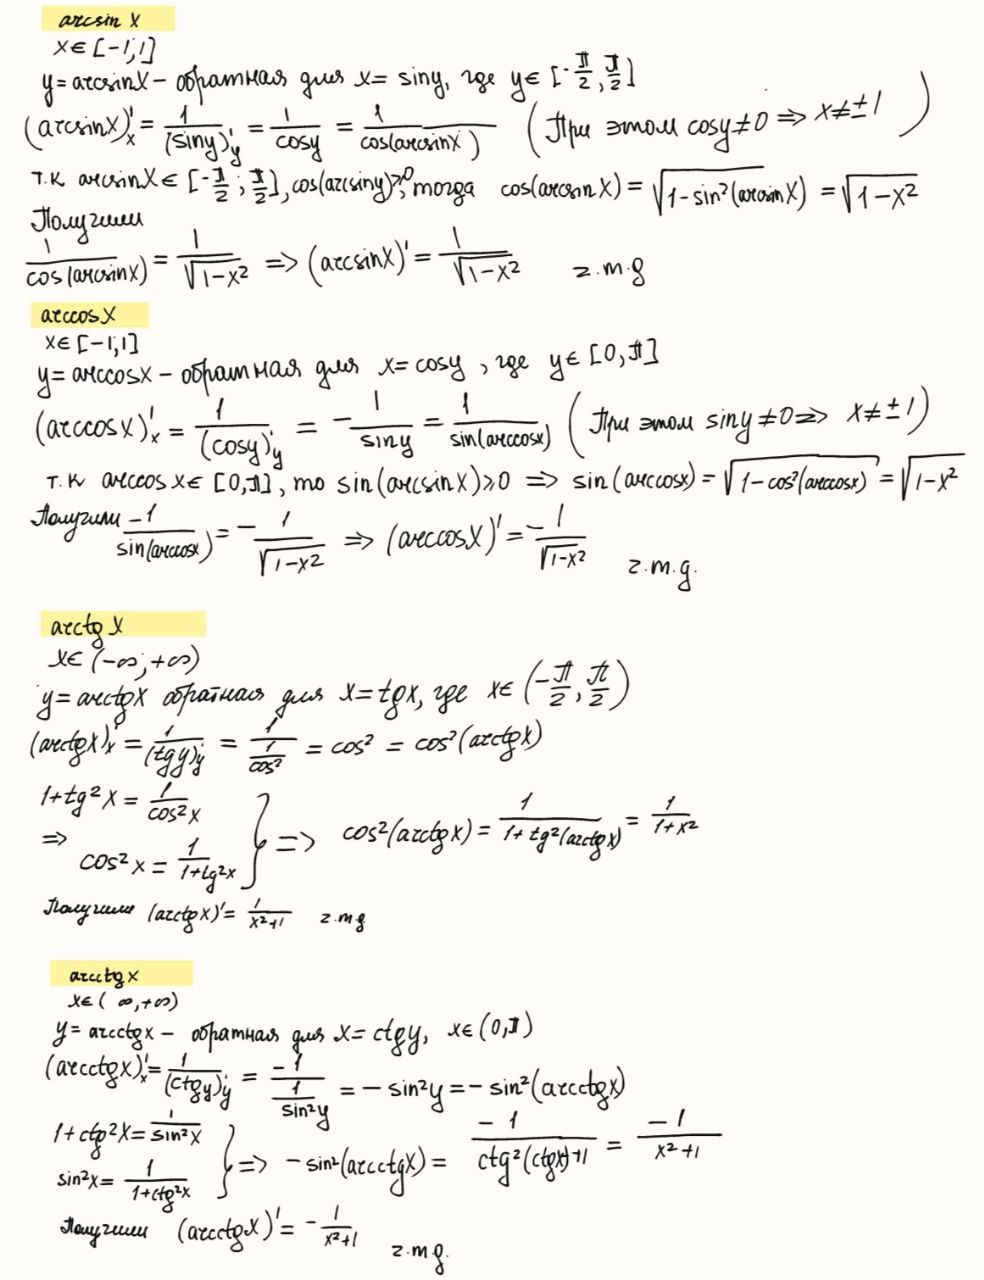 arcsin x
x∈[-1;1]
y=arcsinx - обратная для x= siny, где y∈[-π/2, π/2]
(arcsinx)'ₓ = 1/(siny)'ᵧ = 1/cosy = 1/cos(arcsinx) (При этом cosy≠0 => x≠±1)
т.к arcsinx∈[-π/2; π/2], cos(arcsiny)≥0, тогда cos(arcsinx) = √(1-sin²(arcsinx)) = √(1-x²)
Получим
1/cos(arcsinx) = 1/√(1-x²) => (arcsinx)' = 1/√(1-x²) ч.т.д
arccosx
x∈[-1;1]
y=arccosx - обратная для x=cosy, где y∈[0,π]
(arccosx)'ₓ = 1/(cosy)'ᵧ = -1/siny = 1/sin(arccosx) (При этом siny≠0=> x≠±1)
т.к arccosx∈[0,π], то sin(arcsinx)≥0 => sin(arccosx) = √(1-cos²(arccosx)) = √(1-x²)
Получили -1/sin(arccosx) = -1/√(1-x²) => (arccosx)' = -1/√(1-x²) ч.т.д.
arctg x
x∈(-∞;+∞)
y=arctgx обратная для x=tgx, где x∈(-π/2, π/2)
(arctgx)'ₓ = 1/(tgy)'ᵧ = 1/(1/cos²) = cos² = cos²(arctgx)
1+tg²x = 1/cos²x
=> cos²x = 1/(1+tg²x) } => cos²(arctgx) = 1/(1+tg²(arctgx)) = 1/(1+x²)
Получим (arctgx)' = 1/(x²+1) ч.т.д
arcctgx
x∈( ∞,+∞)
y=arcctgx - обратная для x=ctgy, x∈(0,π)
(arcctgx)'ₓ = 1/(ctgy)'ᵧ = -1/(1/sin²y) = -sin²y = -sin²(arcctgx)
1+ctg²x = 1/sin²x
sin²x = 1/(1+ctg²x) } => -sin²(arcctgx) = -1/(ctg²(ctgx)+1) = -1/(x²+1)
Получим (arcctgx)' = -1/(x²+1) ч.т.д.